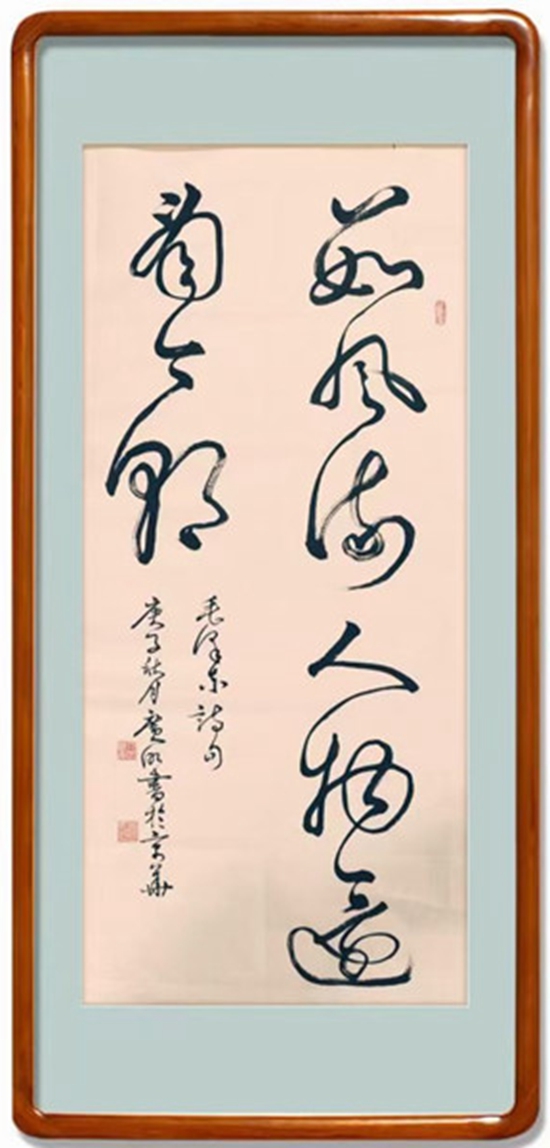 數風流人物還
看今朝
毛澤東詩句
庚子秋月廣書於京華